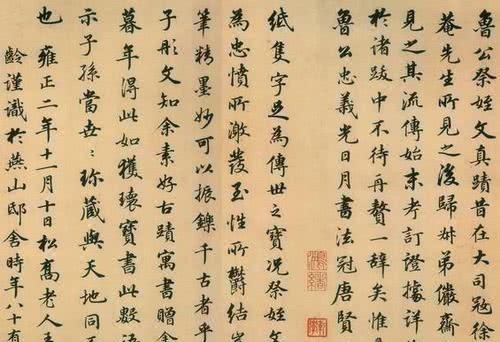 魯公祭姪文真蹟昔在大司冦徐
菴先生所見之後歸叔弟儼齋
見之其流傳始末考訂證據詳
於諸跋中不待再贅一辭矣惟
魯公忠義光日月書法冠唐賢
紙隻字足為傳世之寶況祭姪文
為忠憤所激發至性所鬱結
筆精墨妙可以振鑠千古者乎
子彤文知余素好古蹟寓書贈
暮年得此如獲瓌寶書此數語
示子孫當世〻珍藏與天地同
也雍正二年十一月十日松喬老人王
齡謹識於燕山邸舍時年八十有